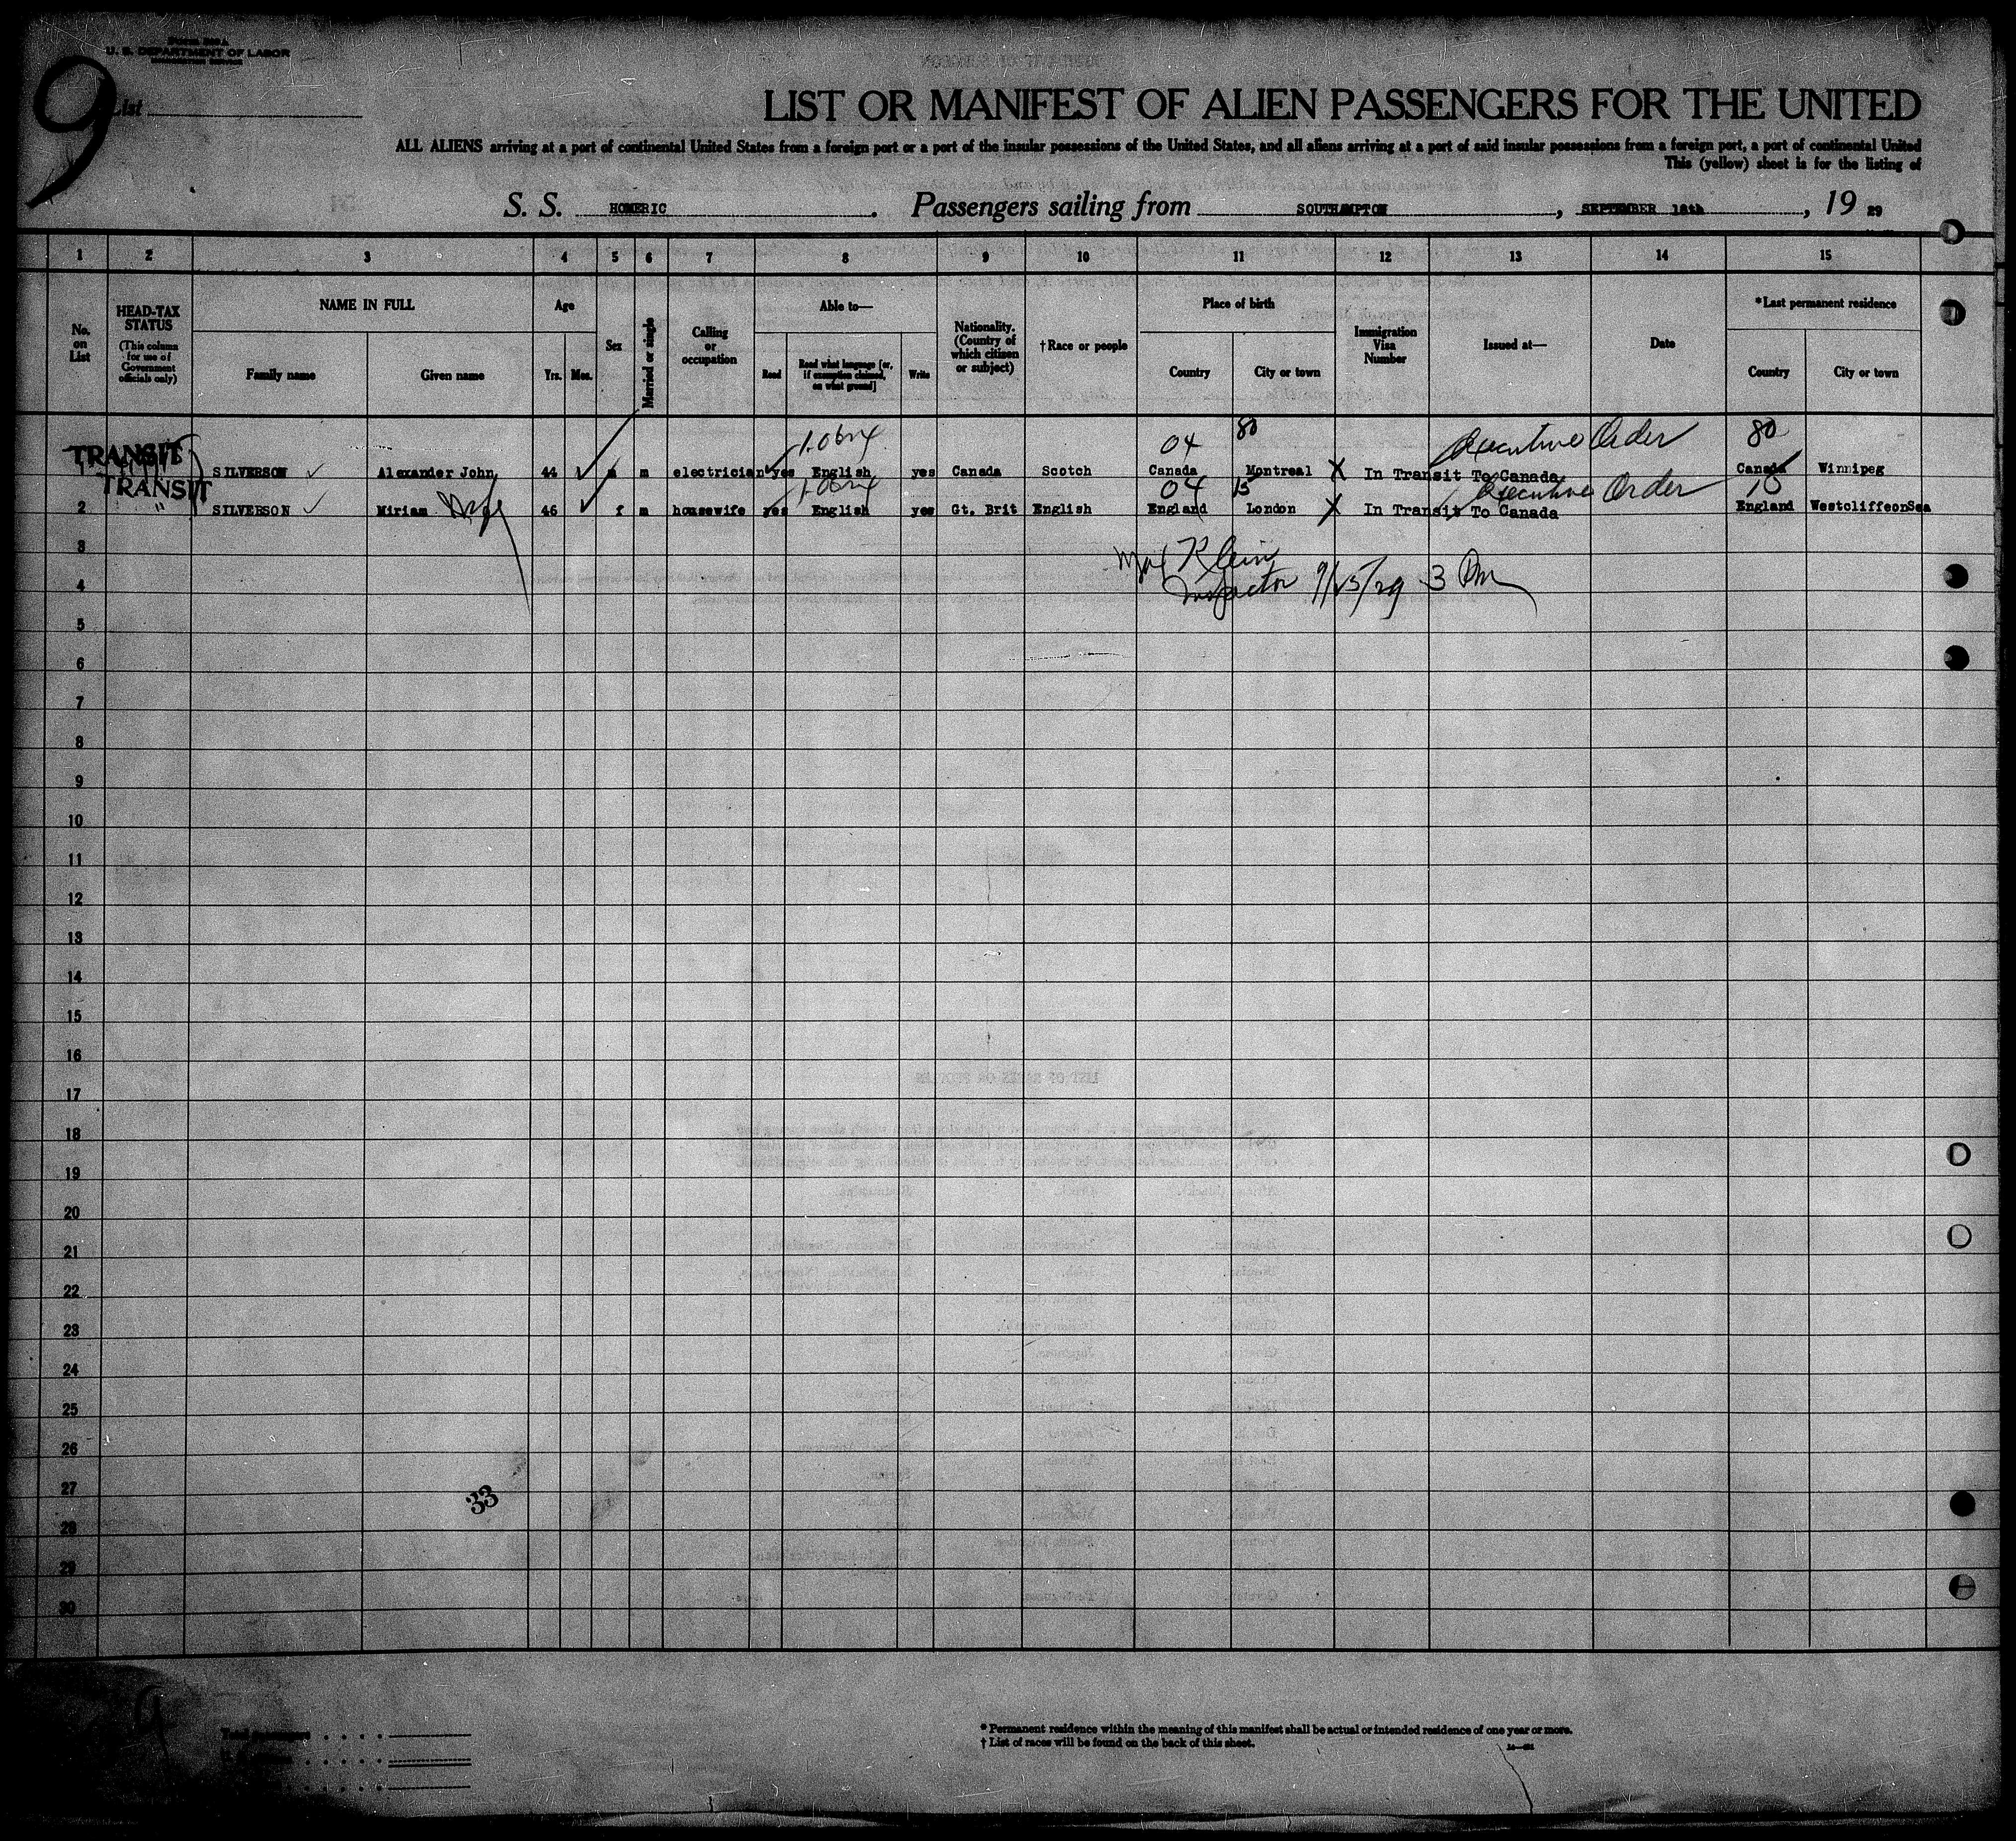 U. S. DEPARTMENT OF LABOR
9
List
LIST OR MANIFEST OF ALIEN PASSENGERS FOR THE UNITED
ALL ALIENS arriving at a port of continental United States from a foreign port or a port of the insular possessions of the United States, and all aliens arriving at a port of said insular possessions from a foreign port, a port of continental United
This (yellow) sheet is for the listing of
S. S. HOMERIC. Passengers sailing from SOUTHAMPTON, SEPTEMBER 18th, 19 29
1 2 3 4 5 6 7 8 9 10 11 12 13 14 15
No. on List
HEAD-TAX STATUS
(This column for use of Government officials only)
NAME IN FULL
Family name Given name
Age
Yrs. Mos.
Sex
Married or single
Calling or occupation
Able to—
Read Read what language [or, if exemption claimed, on what ground] Write
Nationality. (Country of which citizen or subject)
† Race or people
Place of birth
Country City or town
Immigration Visa Number
Issued at—
Date
*Last permanent residence
Country City or town
04 80 Executive Order 80
TRANSIT SILVERSON Alexander John 44 m m electrician yes English yes Canada Scotch Canada Montreal X In Transit To Canada Canada Winnipeg
04 15 Executive Order
TRANSIT
2 " SILVERSON Miriam Wife 46 f m housewife yes English yes Gt. Brit English England London X In Transit To Canada England WestcliffeonSea
3
Klein
4
Inspector 9/25/29 3 Pm
5
6
7
8
9
10
11
12
13
14
15
16
17
18
19
20
21
22
23
24
25
26
27
33
28
29
30
* Permanent residence within the meaning of this manifest shall be actual or intended residence of one year or more.
† List of races will be found on the back of this sheet.